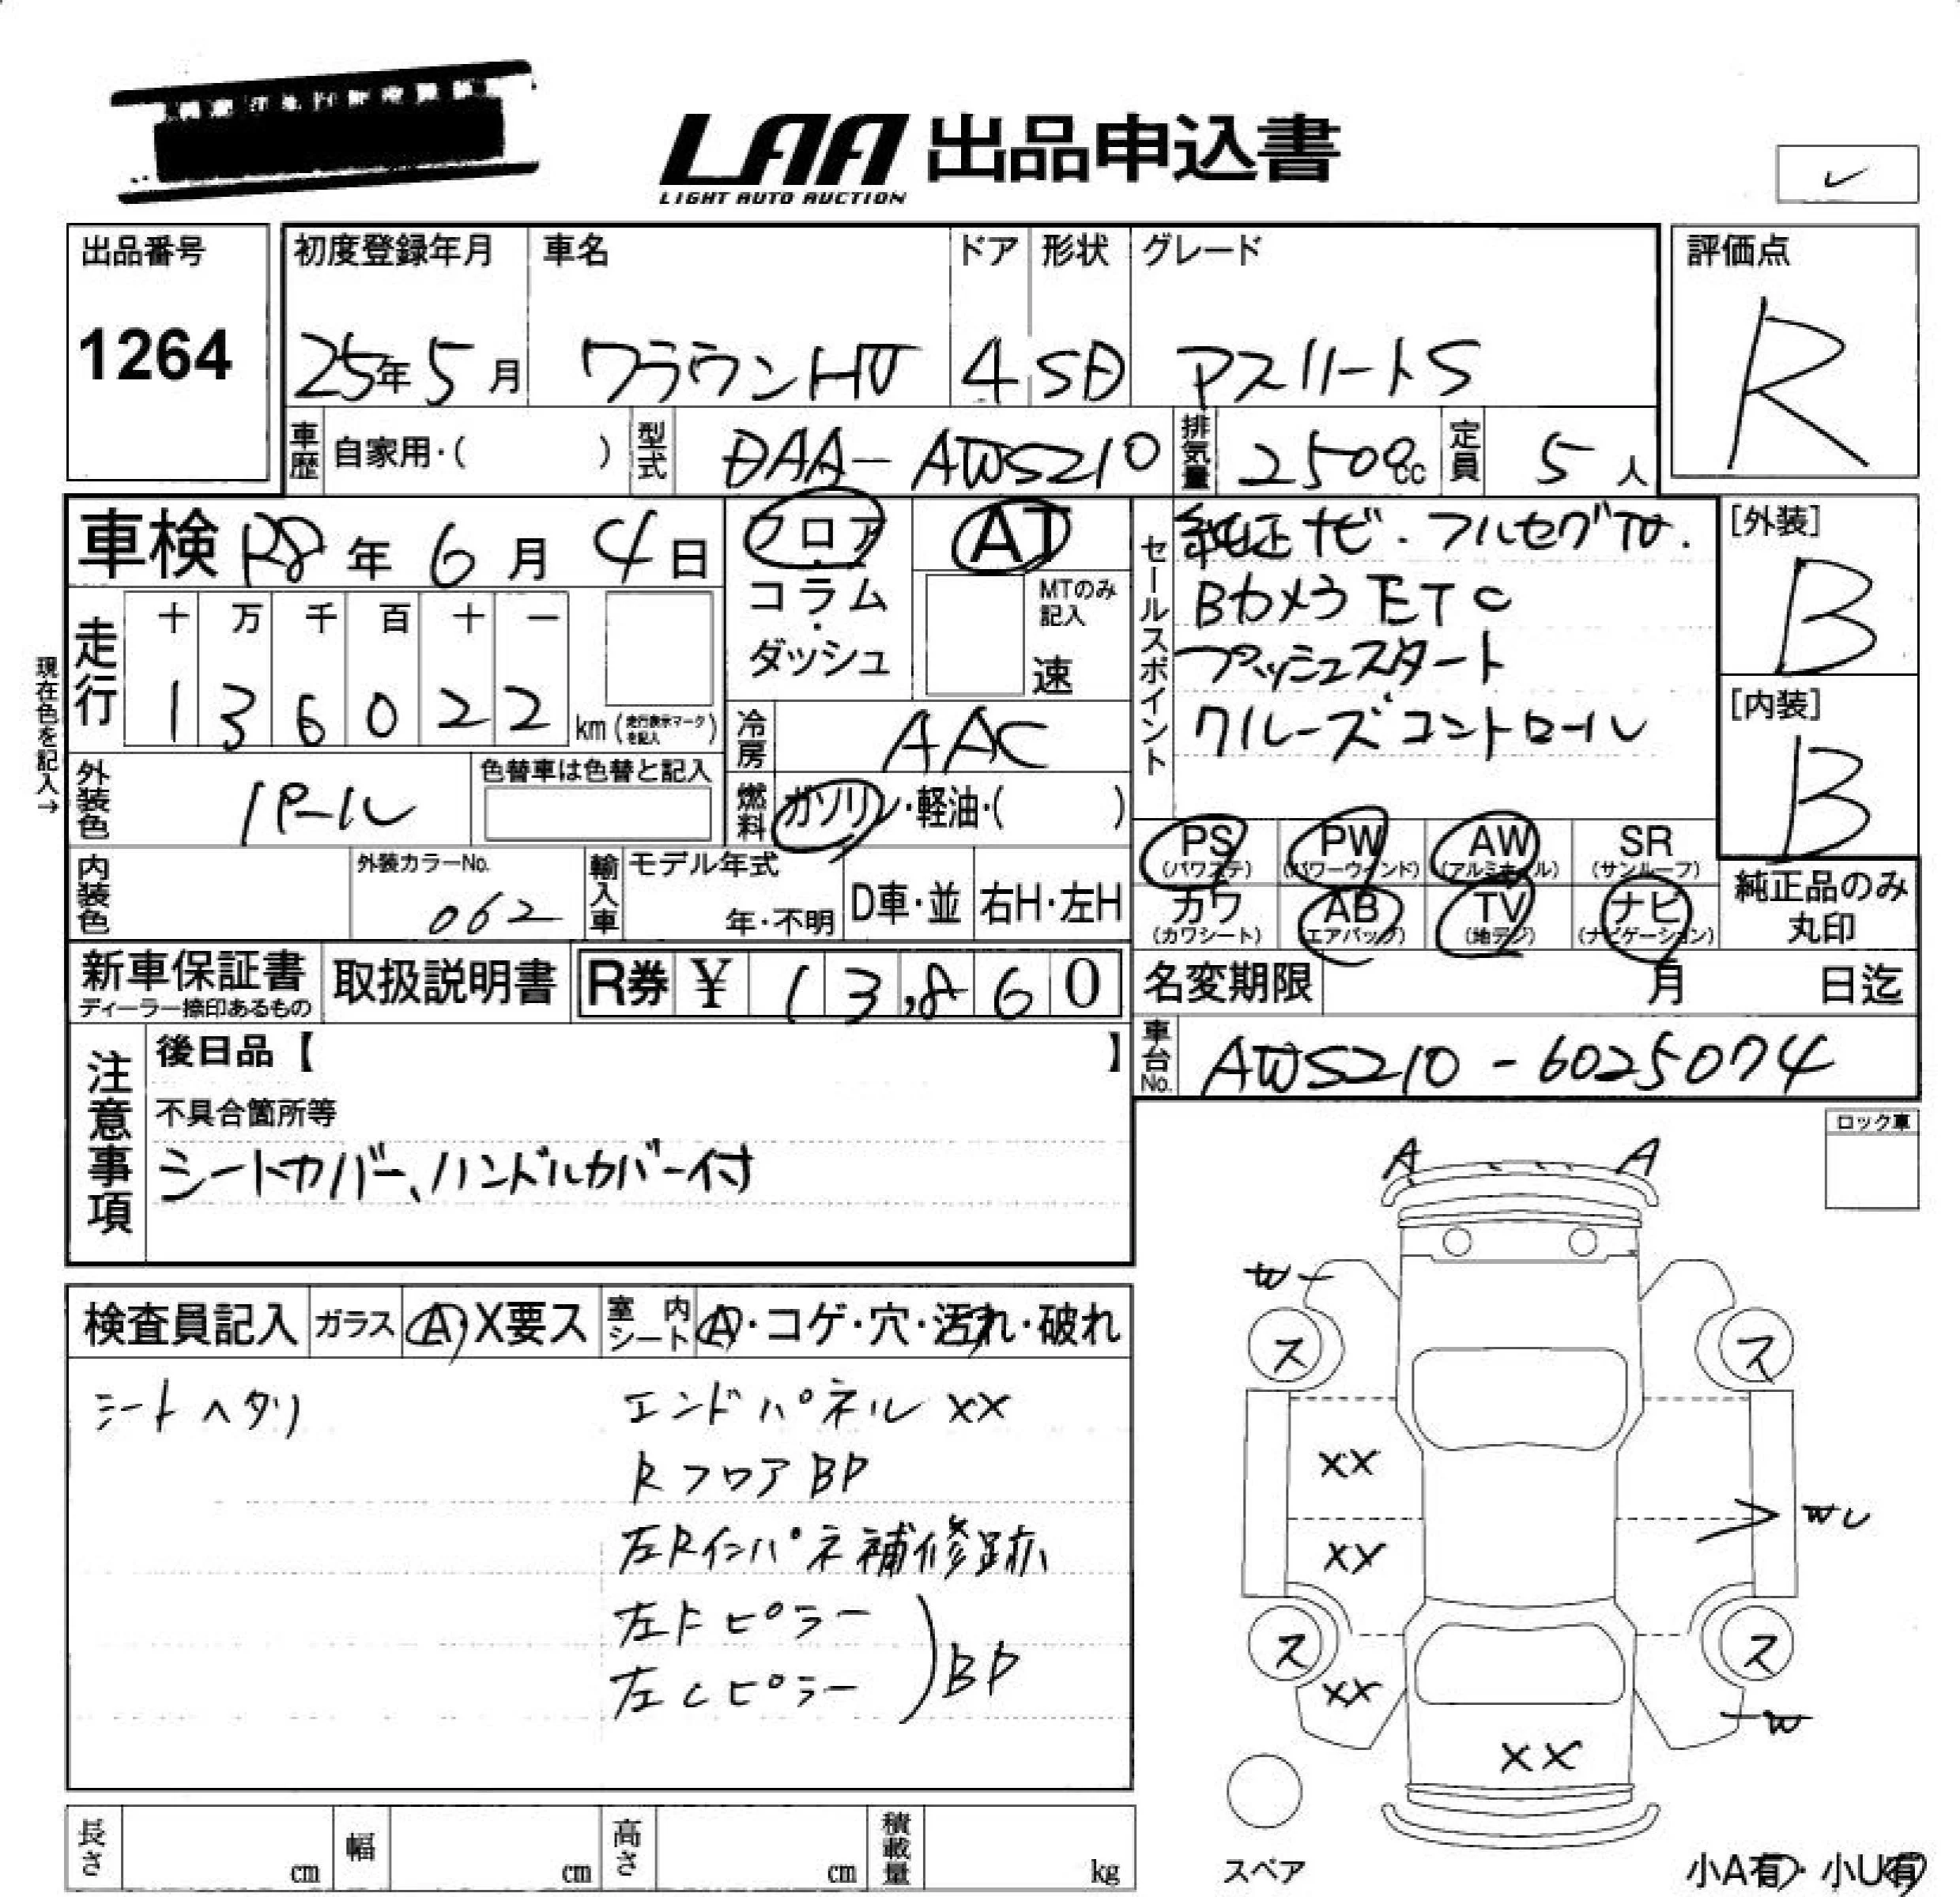 LAA 出品申込書
LIGHT AUTO AUCTION
出品番号
1264
初度登録年月
25年5月
車名
クラウンHV
ドア
4
形状
SD
グレード
アスリートS
評価点
R
車歴 自家用・( )
型式 DAA-AWS210
排気量 2500cc
定員 5人
車検 R8年6月4日
フロア・コラム・ダッシュ
AT
MTのみ記入
速
セールスポイント
純正ナビ・フルセグTV.
Bカメラ ETC
プッシュスタート
クルーズコントロール
[外装]
B
[内装]
B
現在色を記入→
走行
十 万 千 百 十 一
1 3 6 0 2 2 km (走行表示マークを記入)
冷房 AAC
外装色 パール
色替車は色替と記入
燃料 ガソリン・軽油・( )
PS (パワステ)
PW (パワーウインド)
AW (アルミホイル)
SR (サンルーフ)
内装色
外装カラーNo.
062
輸入車 モデル年式
年・不明
D車・並
右H・左H
カワ (カワシート)
AB (エアバック)
TV (地デジ)
ナビ (ナビゲーション)
純正品のみ
丸印
新車保証書
ディーラー捺印あるもの
取扱説明書
R券 ¥ 13,860
名変期限 月 日迄
注意事項
後日品【 】
車台No. AWS210-6025074
不具合箇所等
シートカバー、ハンドルカバー付
ロック車
A A
検査員記入 ガラス A・X要ス 室内シート A・コゲ・穴・汚れ・破れ
シートヘタリ
エンドパネル XX
RフロアBP
左Rインパネ補修跡
左Fピラー
左Cピラー
BP
W
ス ス
XX
XX
WU
ス ス
XX
W
XX
スペア
長さ cm
幅 cm
高さ cm
積載量 kg
小A有・小U有